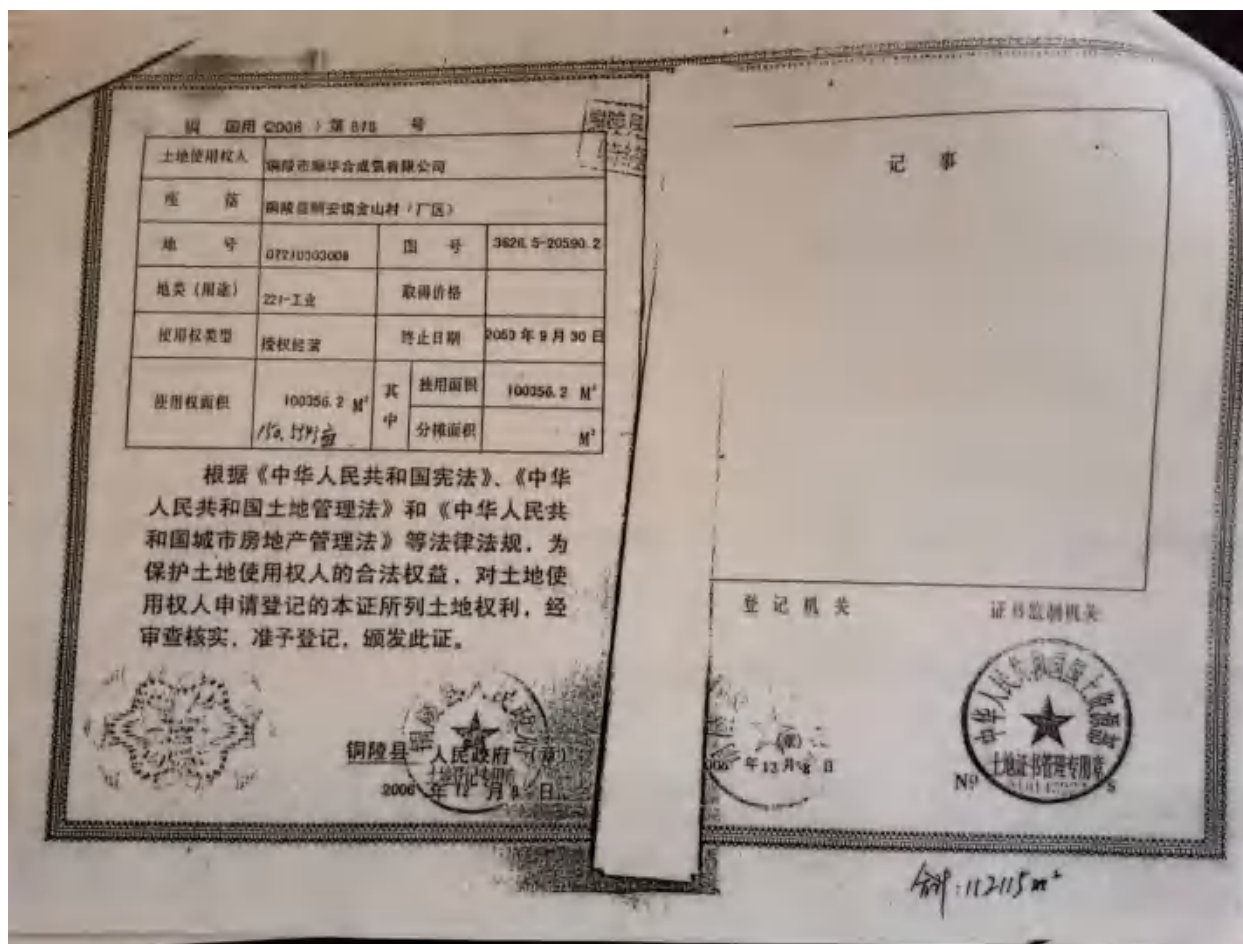 铜 国用（2006）第 号
土地使用权人 铜陵市顺华合成氨有限公司
座 落 铜陵县顺安镇金山村（厂区）
地 号 07210303008 图 号 3626.5-20590.2
地类（用途） 221-工业 取得价格
使用权类型 授权经营 终止日期 2053 年 9 月 30 日
使用权面积 100356.2 M² 其中 独用面积 100356.2 M²
分摊面积 M²
根据《中华人民共和国宪法》、《中华
人民共和国土地管理法》和《中华人民共
和国城市房地产管理法》等法律法规，为
保护土地使用权人的合法权益，对土地使
用权人申请登记的本证所列土地权利，经
审查核实，准予登记，颁发此证。
铜陵县 人民政府（章）
2006 年 12 月 8 日
铜陵县人民政府
土地登记专用章
记 事
登 记 机 关
（章）
年 12 月 8 日
证书监制机关
中华人民共和国国土资源部
土地证书管理专用章
Nº
合计：112115m²